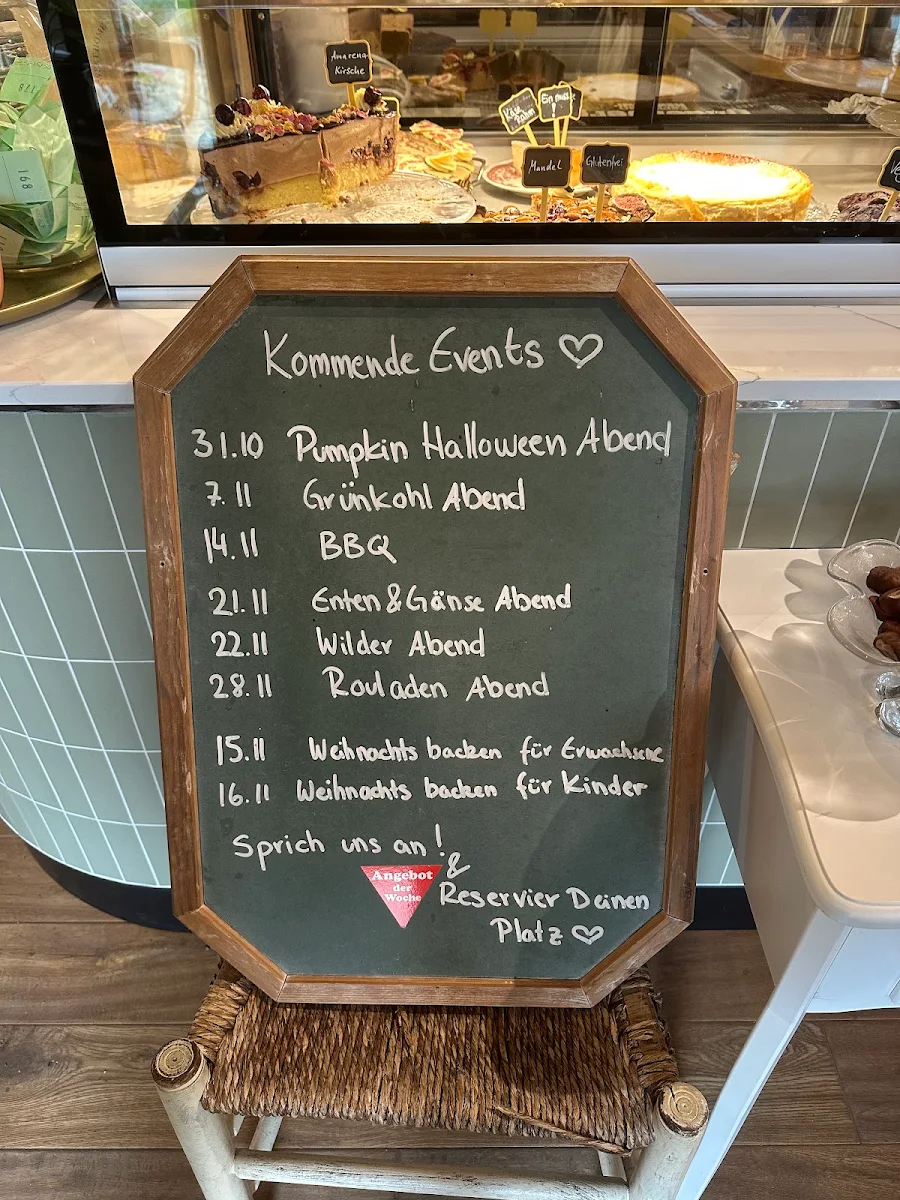 Amarena
Kirsche
Käse
Rahm
Ein muss
!
Mandel
Glutenfrei
168
Kommende Events ♡
31.10 Pumpkin Halloween Abend
7.11 Grünkohl Abend
14.11 BBQ
21.11 Enten & Gänse Abend
22.11 Wilder Abend
28.11 Rouladen Abend
15.11 Weihnachts backen für Erwachsene
16.11 Weihnachts backen für Kinder
Sprich uns an!
&
Angebot
der
Woche
Reservier Deinen
Platz ♡